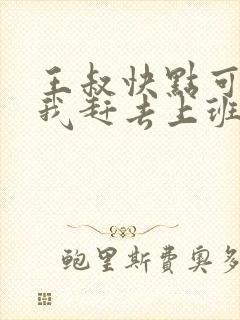 王叔快點可
我趕去上班
鲍里斯費奧多